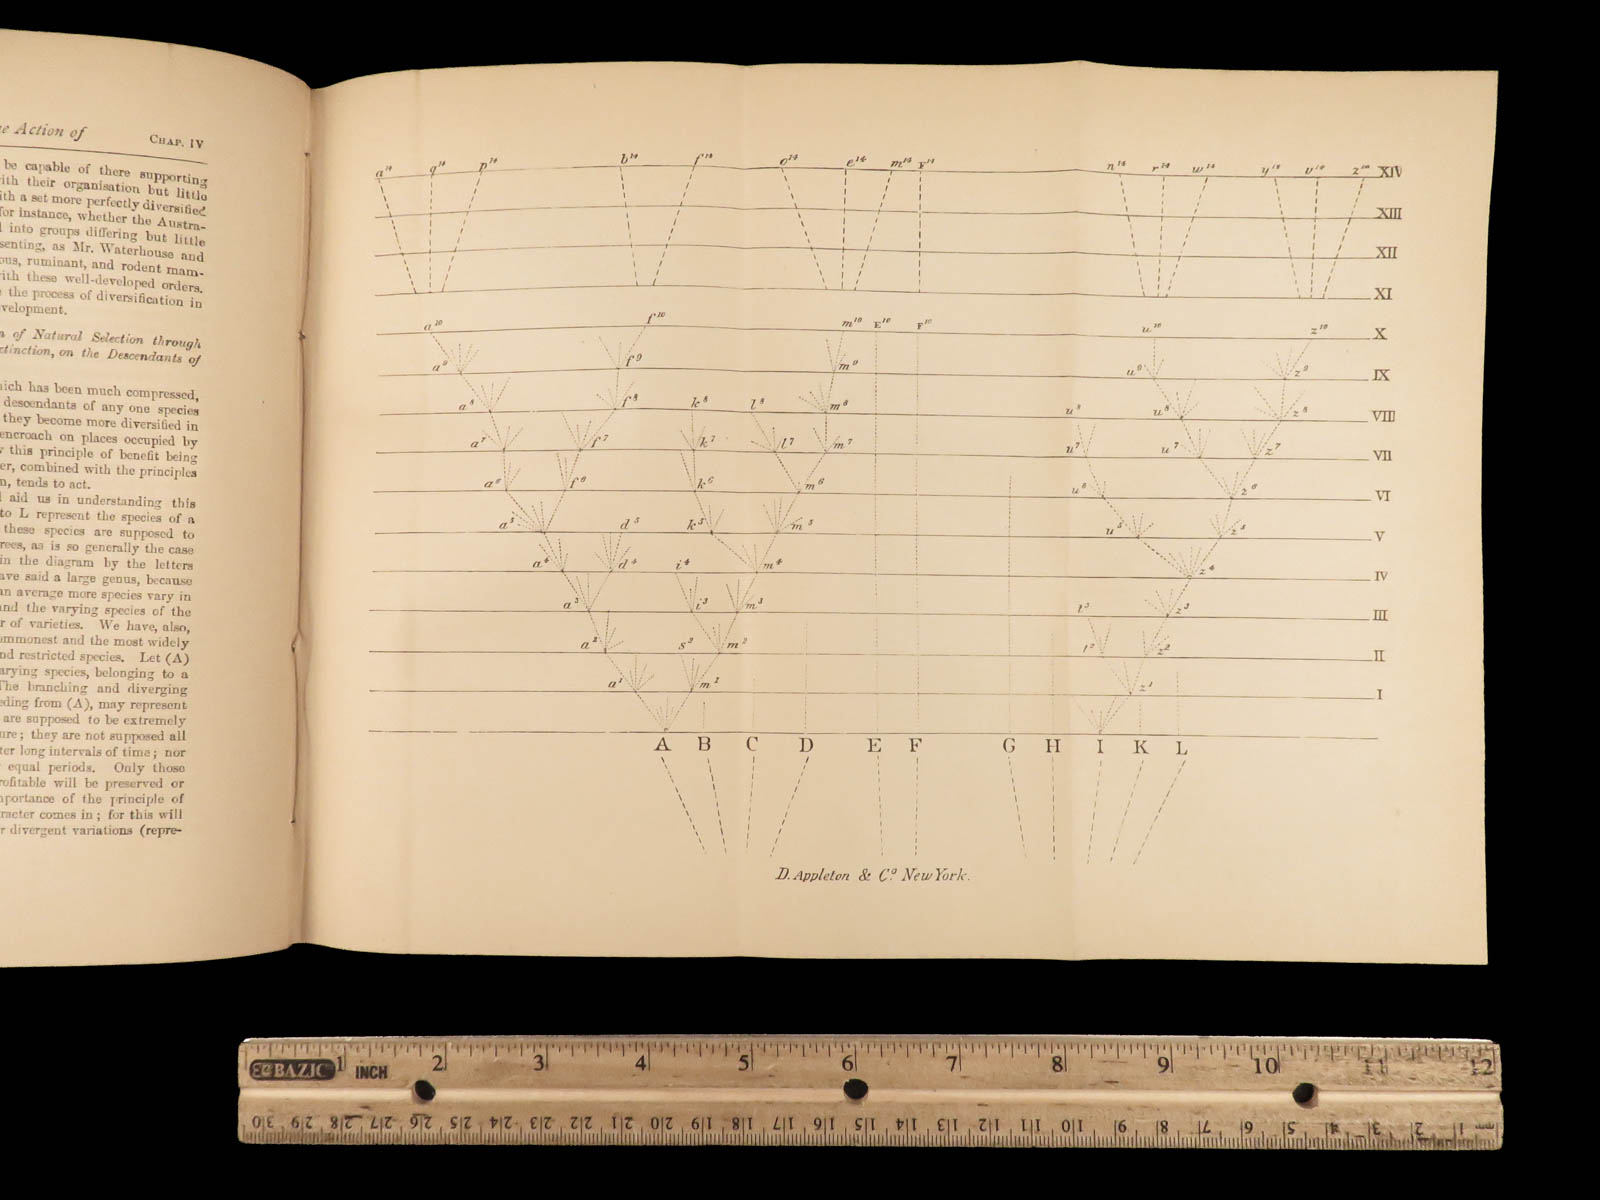 e Action of CHAP. IV
be capable of there supporting
ith their organisation but little
ith a set more perfectly diversified
for instance, whether the Austra-
into groups differing but little
senting, as Mr. Waterhouse and
ous, ruminant, and rodent mam-
ith these well-developed orders.
the process of diversification in
velopment.
of Natural Selection through
tinction, on the Descendants of
ich has been much compressed,
descendants of any one species
they become more diversified in
encroach on places occupied by
this principle of benefit being
er, combined with the principles
n, tends to act.
aid us in understanding this
to L represent the species of a
these species are supposed to
rees, as is so generally the case
in the diagram by the letters
ave said a large genus, because
an average more species vary in
and the varying species of the
r of varieties. We have, also,
ommonest and the most widely
nd restricted species. Let (A)
arying species, belonging to a
The branching and diverging
eding from (A), may represent
are supposed to be extremely
ure; they are not supposed all
ter long intervals of time; nor
equal periods. Only those
rofitable will be preserved or
mportance of the principle of
racter comes in; for this will
r divergent variations (repre-
a¹⁴ q¹⁴ p¹⁴ b¹⁴ f¹⁴ o¹⁴ e¹⁴ m¹⁴ F¹⁴ n¹⁴ r¹⁴ w¹⁴ y¹⁴ v¹⁴ z¹⁴ XIV
XIII
XII
XI
a¹⁰ f¹⁰ m¹⁰ E¹⁰ F¹⁰ u¹⁰ z¹⁰ X
a⁹ f⁹ m⁹ u⁹ z⁹ IX
a⁸ f⁸ k⁸ l⁸ m⁸ u⁸ u⁸ z⁸ VIII
a⁷ f⁷ k⁷ l⁷ m⁷ u⁷ u⁷ z⁷ VII
a⁶ f⁶ k⁶ m⁶ u⁶ z⁶ VI
a⁵ d⁵ k⁵ m⁵ u⁵ z⁵ V
a⁴ d⁴ i⁴ m⁴ z⁴ IV
a³ i³ m³ t³ z³ III
a² s² m² t² z² II
a¹ m¹ z¹ I
A B C D E F G H I K L
D. Appleton & Cº. New York.
BAZIC 1 INCH 2 3 4 5 6 7 8 9 10 11 12
30 29 28 27 26 25 24 23 22 21 20 19 18 17 16 15 14 13 12 11 10 9 8 7 6 5 4 3 2 1